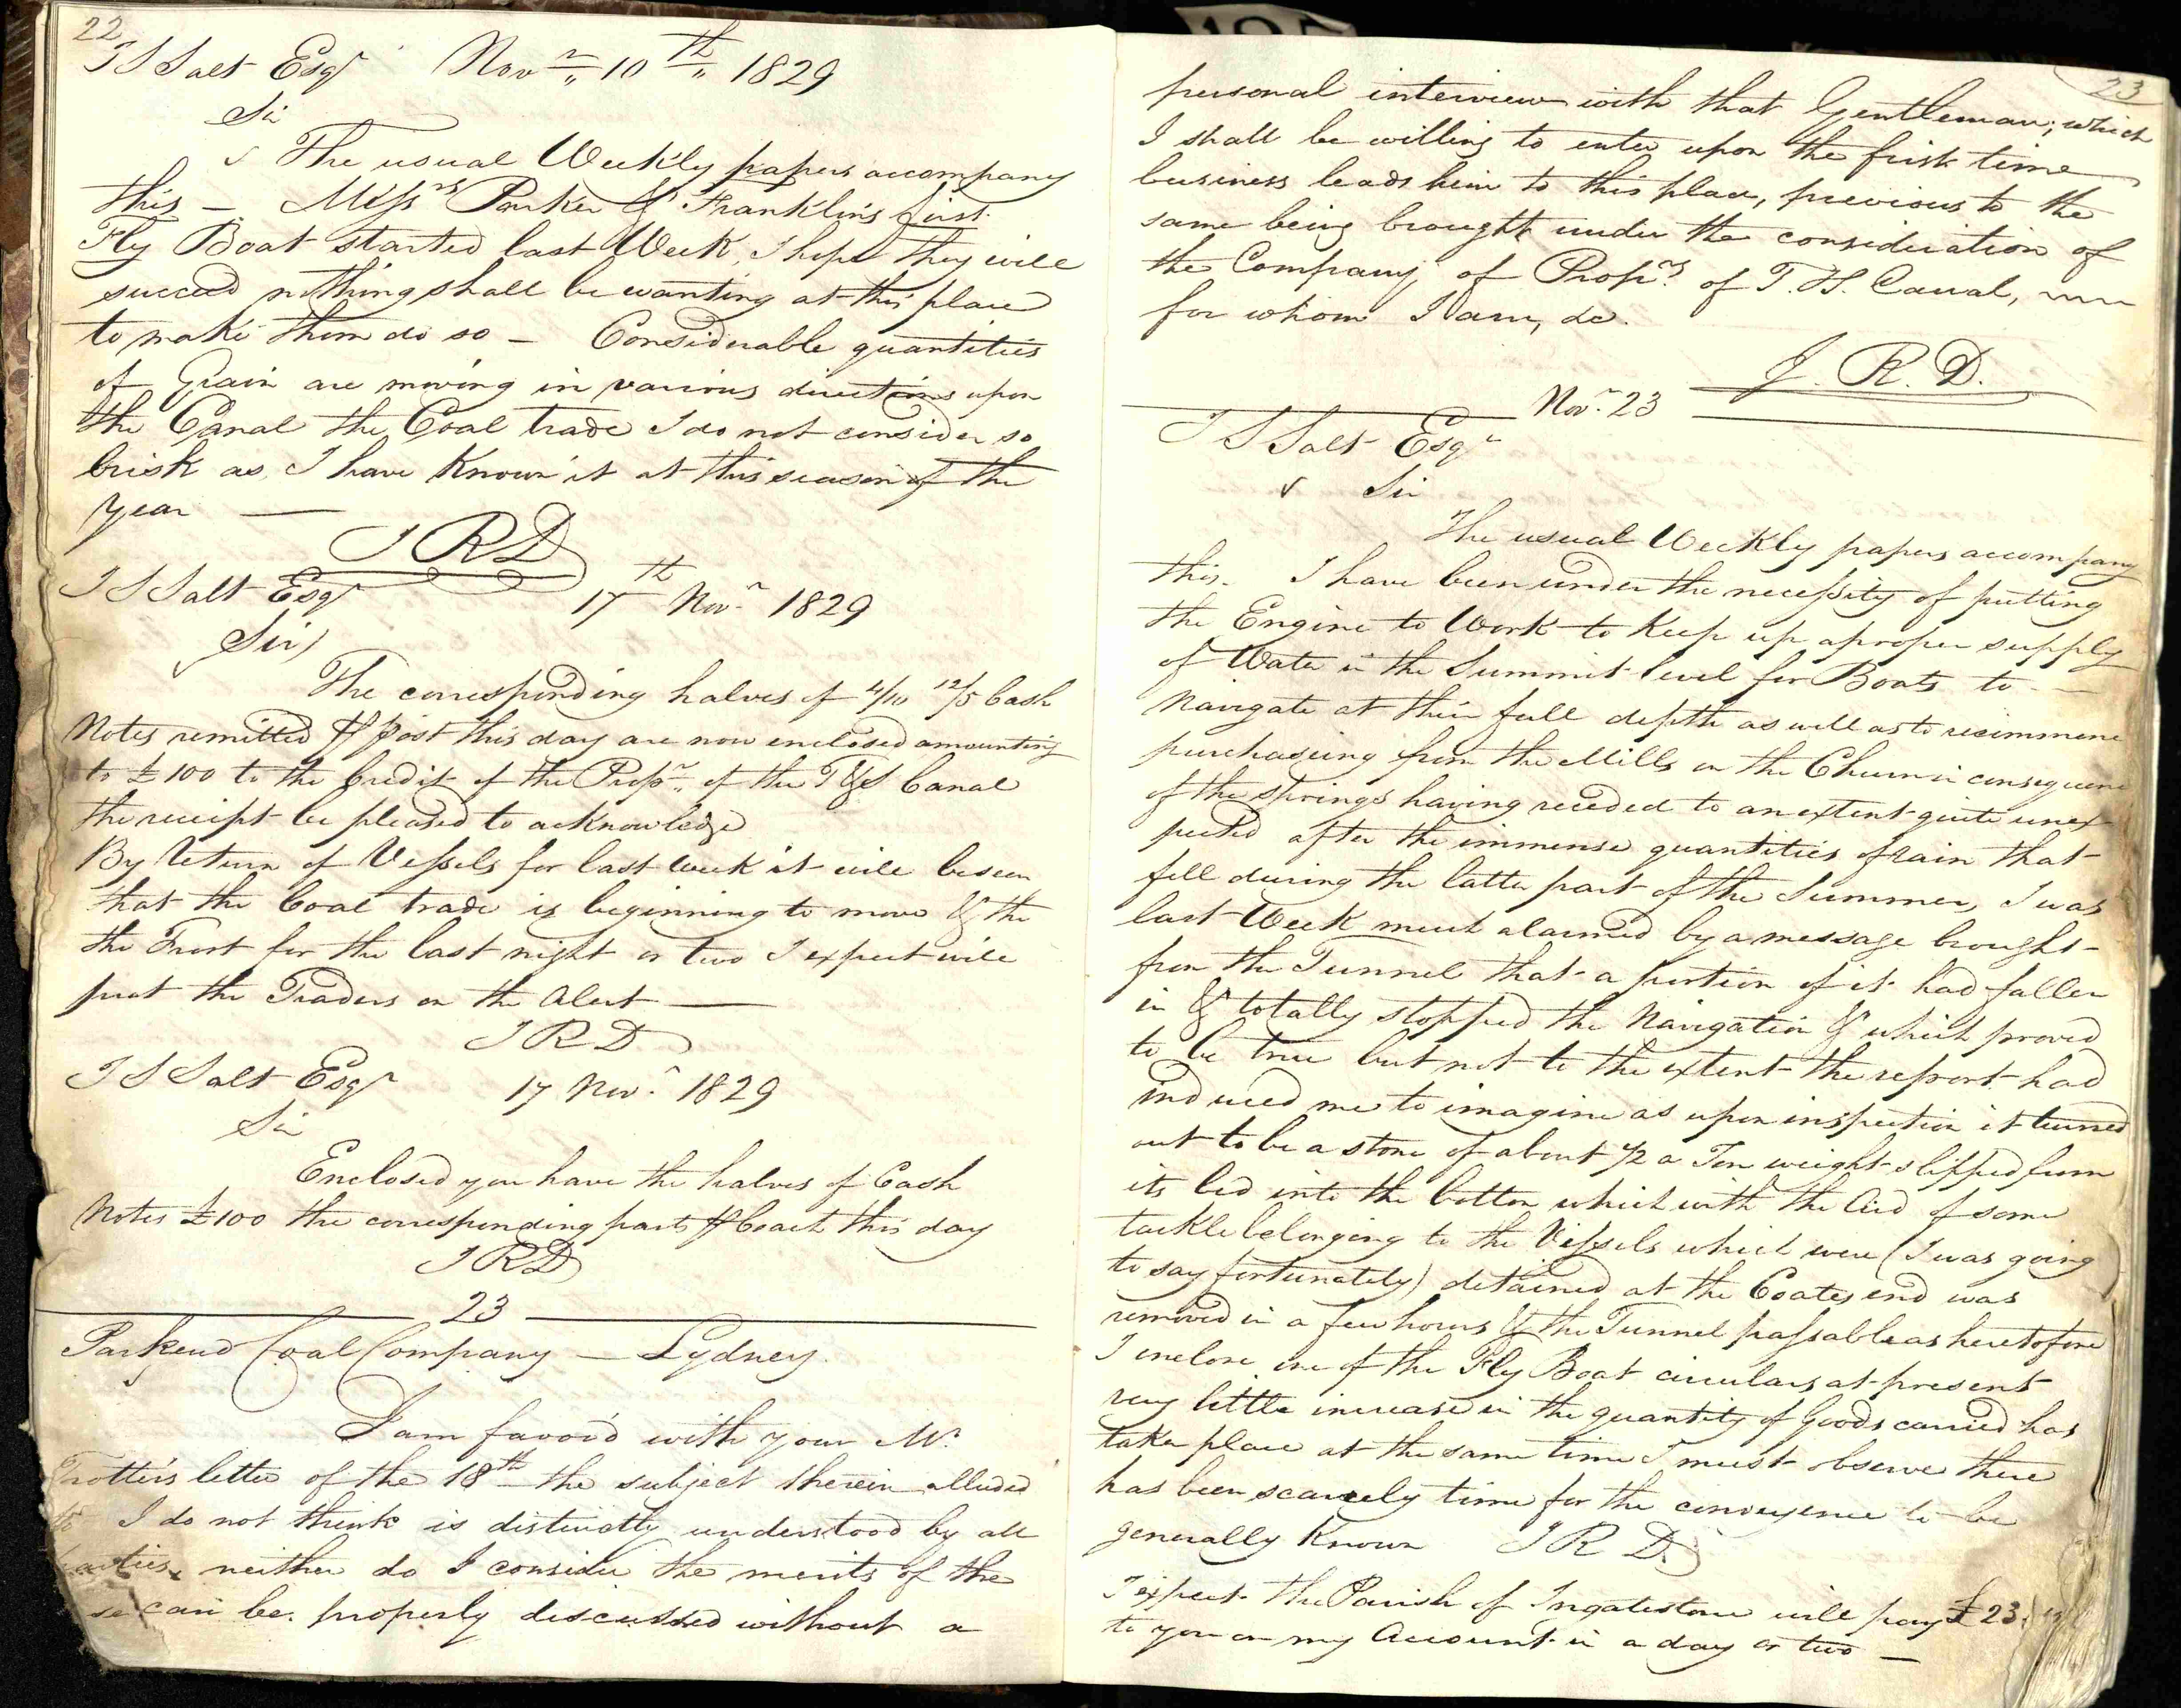 22
J S Salt Esqr Novr 10th 1829
Sir
The usual Weekly papers accompany
this — Messrs Parker & Franklin's first
Fly Boat started last Week, I hope they will
succeed nothing shall be wanting at this place
to make them do so — Considerable quantities
of Grain are moving in various directions upon
the Canal the Coal trade I do not consider so
brisk as I have Known it at this season of the
year —
J R D
J S Salt Esqr 17th Novr 1829
Sir
The corresponding halves of 4/10 12/5 Cash
Notes remitted post this day are now enclosed amounting
to £100 to the Credit of the Propr. of the T & S Canal
the receipt be pleased to acknowledge
By Return of Vessels for last Week it will be seen
that the Coal trade is beginning to move & the
the Frost for the last night or two I expect will
put the Traders on the Alert —
J R D
J S Salt Esqr 17 Novr 1829
Sir
Enclosed you have the halves of Cash
Notes £100 the corresponding parts Coach this day
J R D
23
Parkend Coal Company — Lydney.
I am favor'd with your Mr.
Trotter's letter of the 18th the subject therein alluded
to I do not think is distinctly understood by all
parties, neither do I consider the merits of the
se can be properly discussed without a
23
personal interview with that Gentleman; which
I shall be willing to enter upon the first time
business leads him to this place, previous to the
same being brought under the consideration of
the Company of Proprs. of T. & S. Canal,
for whom I am, &c.
J. R. D.
Novr. 23
J S Salt Esqr
Sir
The usual Weekly papers accompany
this. I have been under the necessity of putting
the Engine to Work to Keep up a proper supply
of Water in the Summit level for Boats to —
Navigate at their full depth as well as to recommence
purchasing from the Mills on the Churn in consequence
of the springs having receded to an extent quite unex-
pected after the immense quantities of rain that
fell during the latter part of the Summer, I was
last Week much alarmed by a message brought
from the Tunnel that a portion of it had fallen
in & totally stopped the Navigation & which proved
to be true but not to the extent the report had
induced me to imagine as upon inspection it turned
out to be a stone of about 1/2 a Ton weight slipped from
its bed into the bottom which with the Aid of some
tackle belonging to the Vessels which were (I was going
to say fortunately) detained at the Coates end was
removed in a few hours & the Tunnel passable as heretofore
I inclose one of the Fly Boat circulars, at present
very little increase in the quantity of Goods carried has
taken place at the same time I must observe there
has been scarcely time for the conveyence to be
generally Known J R D.
I expect the Parish of Ingatestone will pay £23
to you on my Account in a day or two —